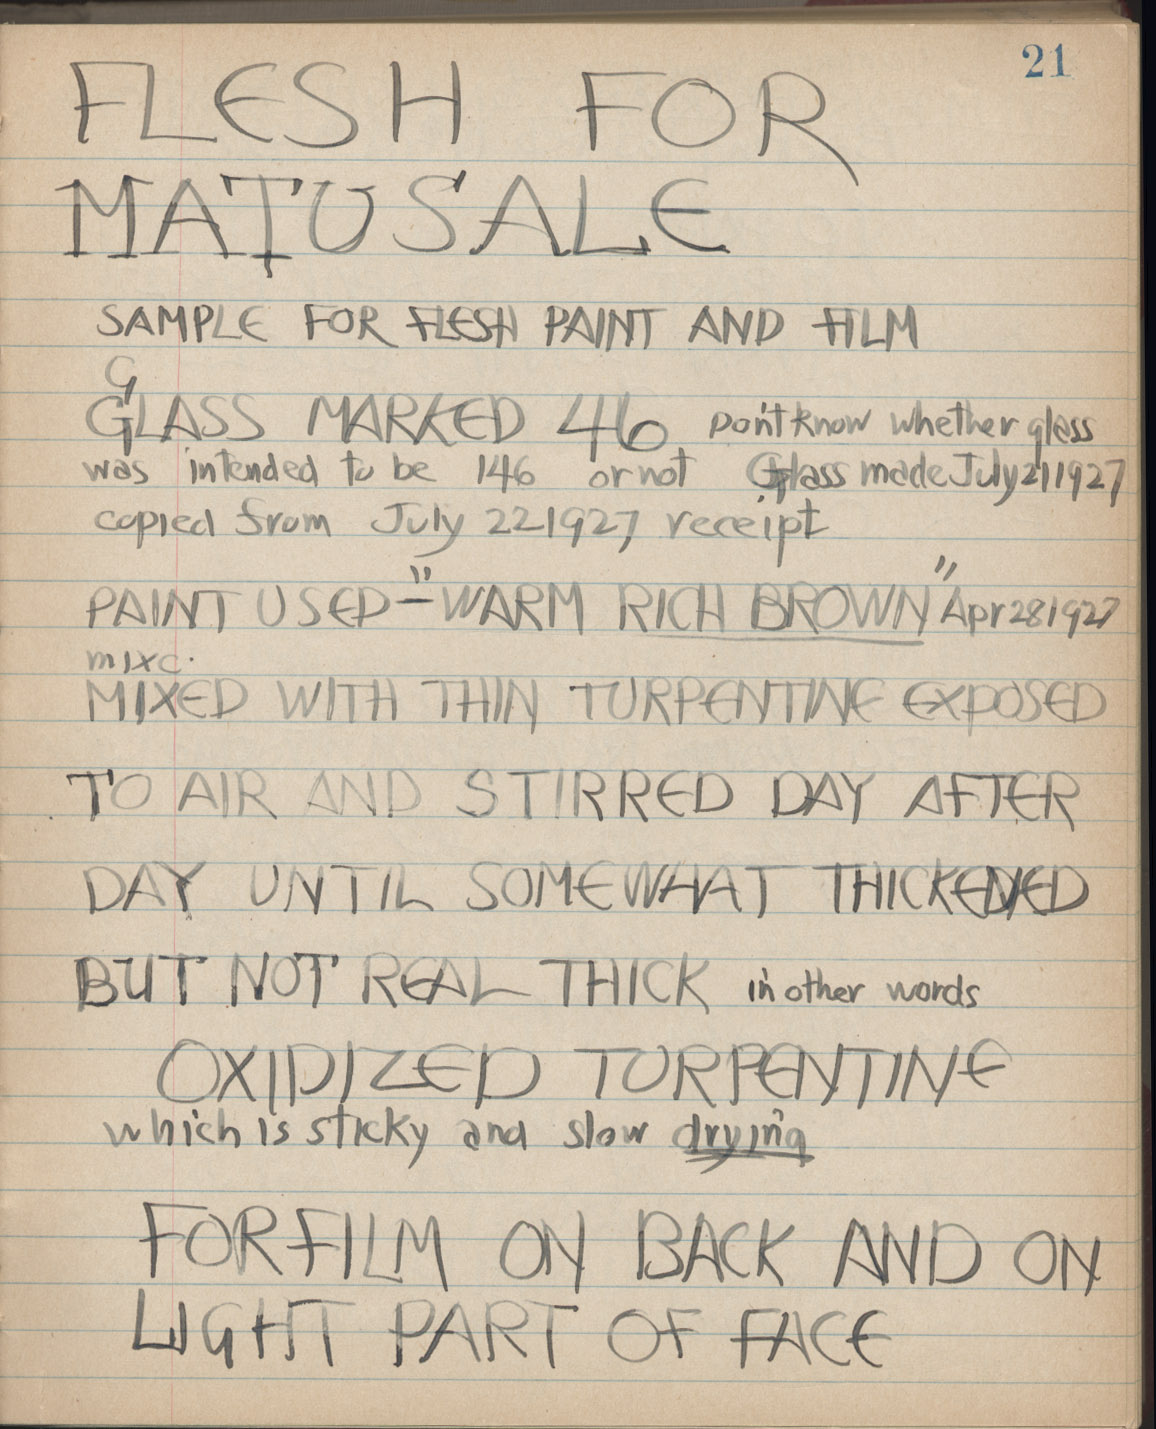 21
FLESH FOR
MATUSALE
SAMPLE FOR FLESH PAINT AND FILM
G
GLASS MARKED 46 Don't know whether glass
was intended to be 146 or not Glass made July 21 1927
copied from July 22 1927 receipt
PAINT USED - "WARM RICH BROWN" Apr 28 1927
mixc.
MIXED WITH THIN TURPENTINE EXPOSED
TO AIR AND STIRRED DAY AFTER
DAY UNTIL SOMEWHAT THICKENED
BUT NOT REAL THICK in other words
OXIDIZED TURPENTINE
which is sticky and slow drying
FOR FILM ON BACK AND ON
LIGHT PART OF FACE